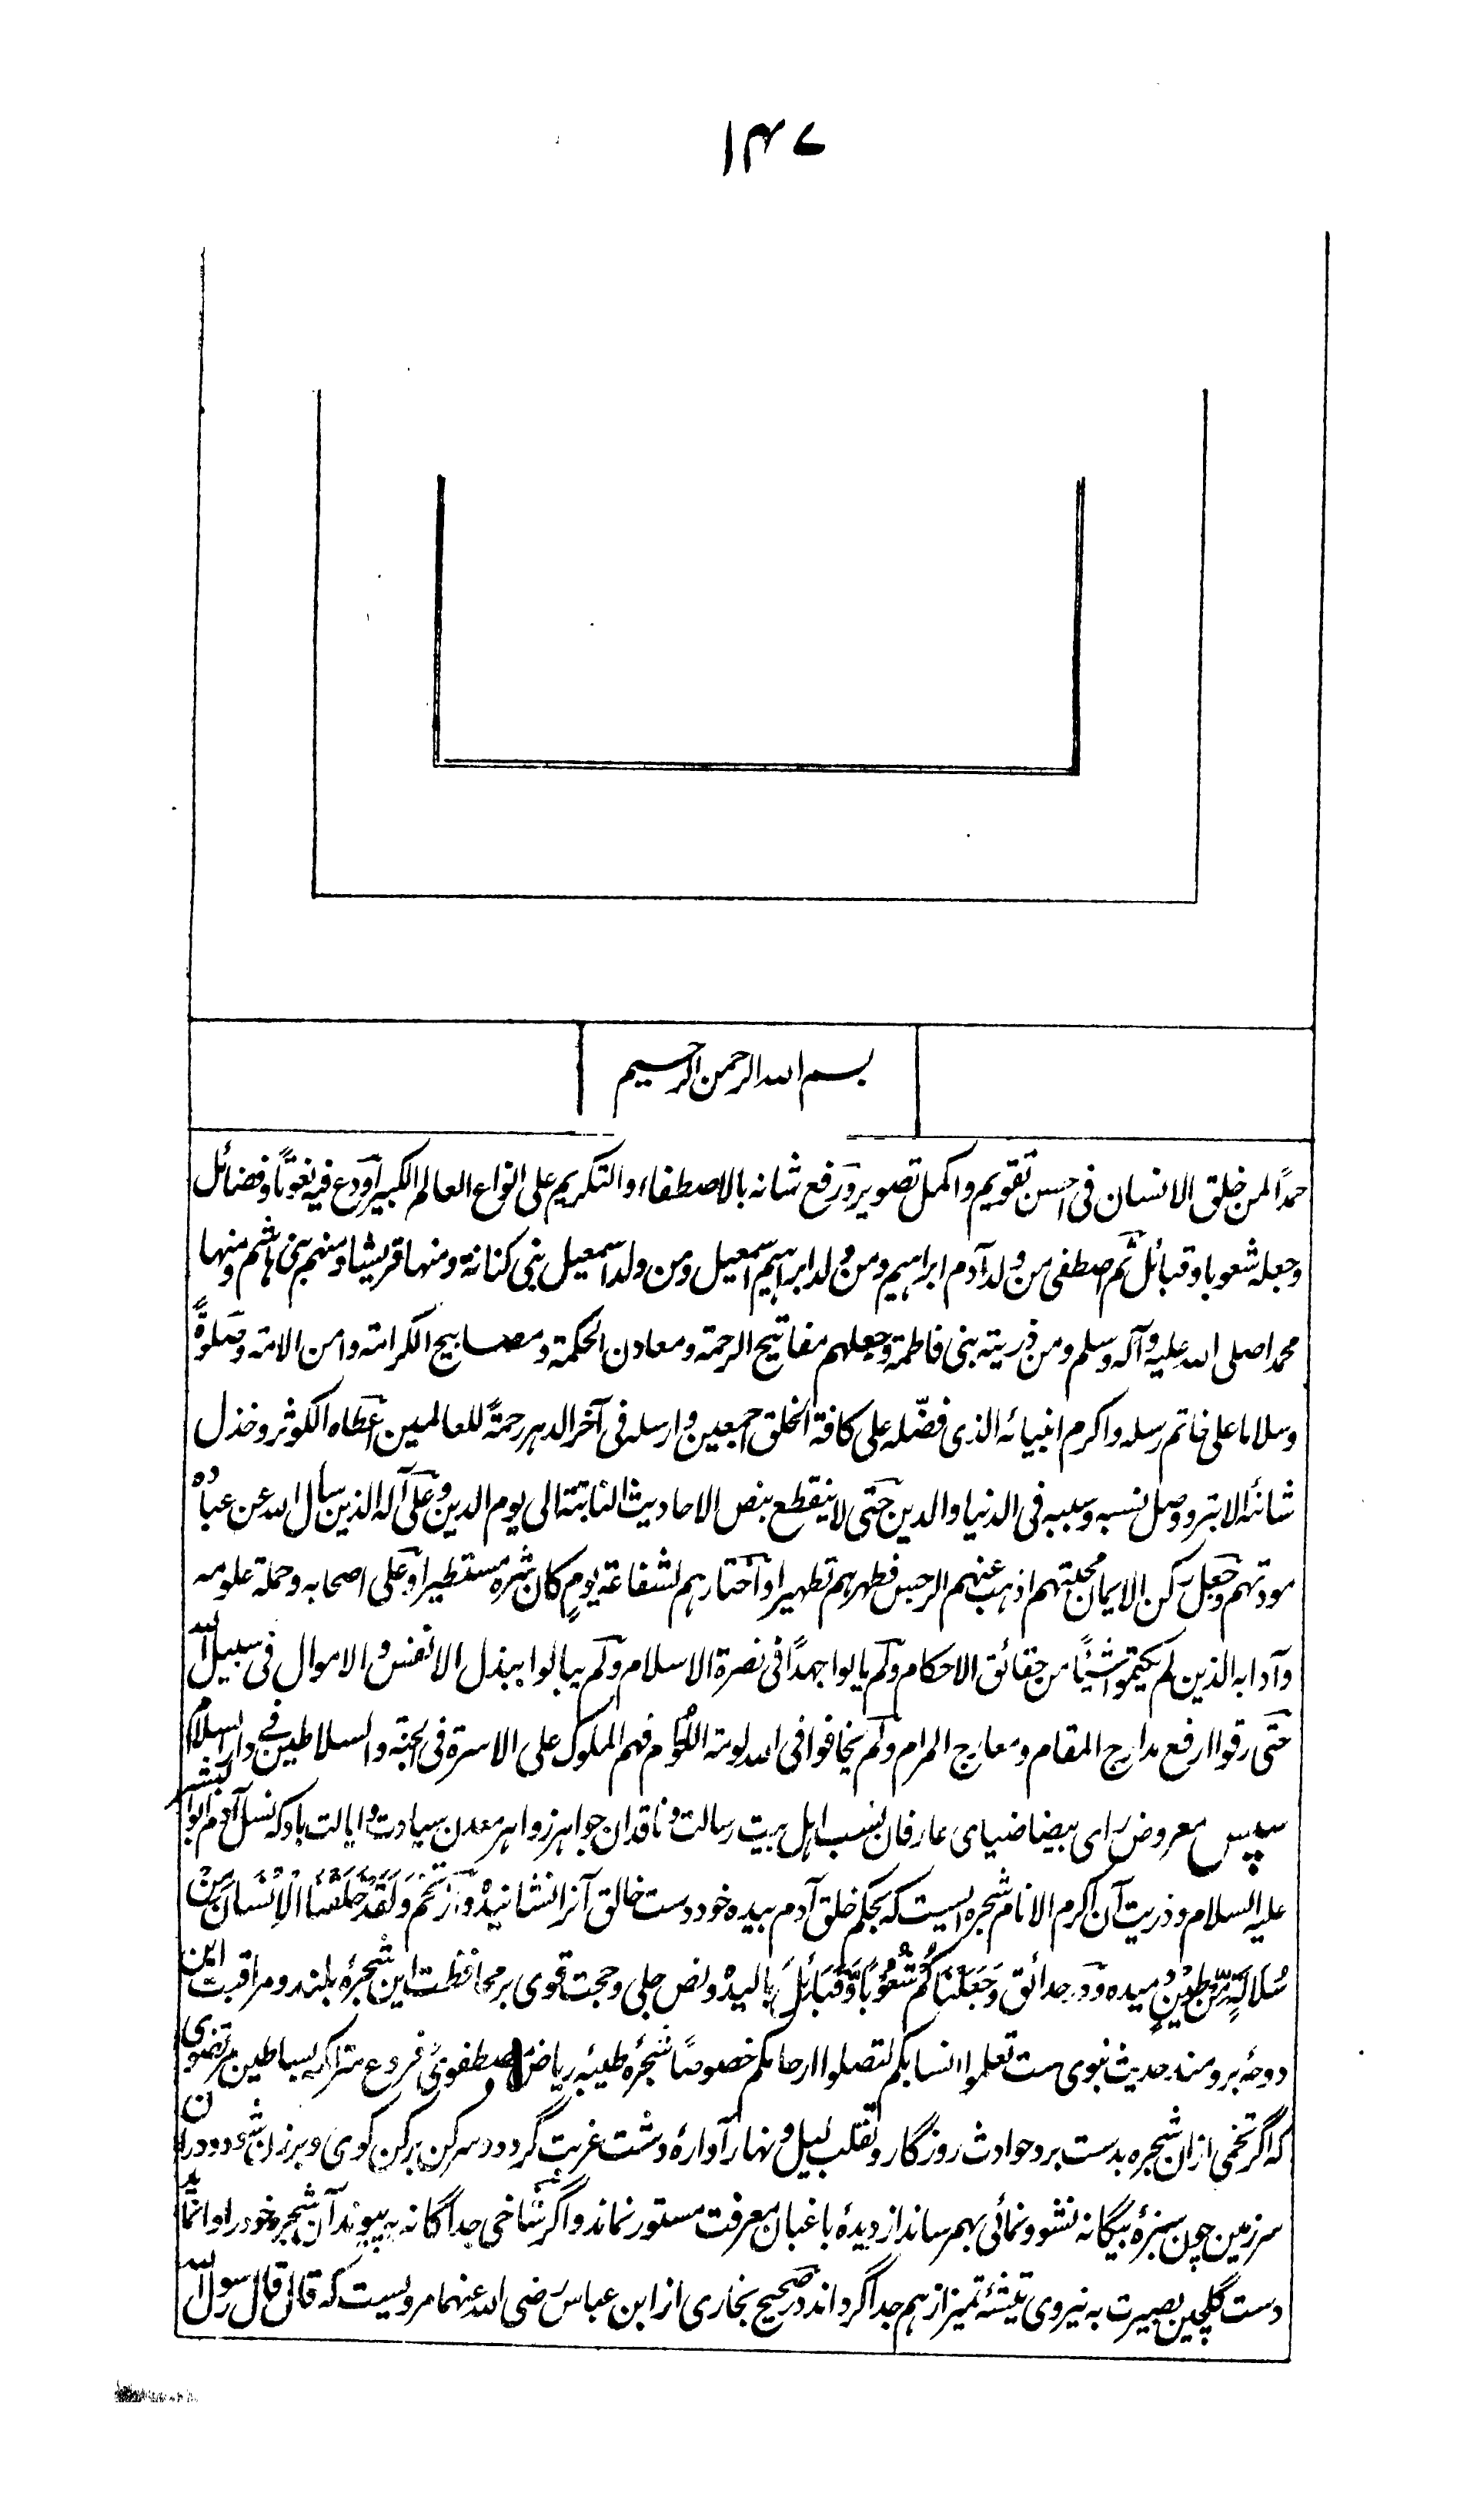 ۱۴۷
بسم الله الرحمن الرحیم
حمدًا لمن خلق الانسان فی احسن تقویم واکمل تصویر ورفع شانه بالاصطفاء والتکریم علی انواع العالم الکبیر اودع فیه نعوتًا وفضائل
وجعله شعوبا وقبائل ثم اصطفی من ولد آدم ابراهیم ومن ولد ابراهیم اسمعیل ومن ولد اسمعیل بنی کنانة ومنها قریشا ومنهم بنی هاشم ومنها
محمدا صلی الله علیه وآله وسلم ومن ذریته بنی فاطمة وجعلهم مفاتیح الرحمة ومعادن الحکمة ومصابیح الکرامة وامن الامة وصلوةً
وسلاما علی خاتم رسله واکرم انبیائه الذی فضّله علی کافة الخلق اجمعین وارسله فی آخر الدهر رحمةً للعالمین اعطاه الکوثر وخذل
شانئه الابتر ووصل نسبه وسببه فی الدنیا والدین حتی لا ینقطع بنص الاحادیث الثابتة الی یوم الدین وعلی آله الذین سأل الله عن عباده
مودتهم وجعل رکن الایمان محبتهم اذهب عنهم الرجس فطهرهم تطهیرا واختارهم لشفاعة یومٍ کان شره مستطیرا وعلی اصحابه وحملة علومه
وآدابه الذین لم یکتموا شیئًا من حقائق الاحکام ولم یالوا جهدًا فی نصرة الاسلام ولم یبالوا ببذل الانفس والاموال فی سبیل الله
حتی رقوا ارفع مدارج المقام ومعارج المرام ولم یخافوا فی الله لومة اللوّام فهم الملوک علی الاسرة فی الجنة والسلاطین فی دار السلام
سپس معروض رای بیضا ضیای عارفان نسب اهل بیت رسالت وناقدان جواهر زواهر معدن سیادت وایالت باد که نسل آدم ابو البشر
علیه السلام وذریت آن اکرم الانام شجره ایست که بحکم خلق آدم بیده خود دست خالق آنرا نشانیده واز تخم وَلَقَدْ خَلَقْنَا الْاِنْسَانَ مِنْ
سُلَالَةٍ مِّنْ طِیْنٍ دمیده ودر حدائق وَجَعَلْنَاکُمْ شُعُوْبًا وَّقَبَائِلَ بالیده ونص جلی وحجت قوی بر محافظت این شجرهٔ بلند ومراقبت این
دوحهٔ برومند حدیث نبوی ست تعلموا انسابکم لتصلوا ارحامکم خصوصًا شجرهٔ طیبهٔ ریاض مصطفوی وفروع متراکمه بساطین مرتضوی
که اگر تخمی ازان شجره بدست برد حوادث روزگار وتقلب لیل ونهار آوارهٔ دشت غربت گردد وسرکن برکن کوی وبرزن شود ودران
سرزمین چون سبزهٔ بیگانه نشو ونمائی بهم رساند از دیدهٔ باغبان معرفت مستور نماند واگر شاخی جداگانه به پیوند آن شجره خود را وانماید
دست گلچین بصیرت به نیروی تیشهٔ تمیز از هم جدا گرداند در صحیح بخاری از ابن عباس رضی الله عنهما مرویست که قال قال رسول الله